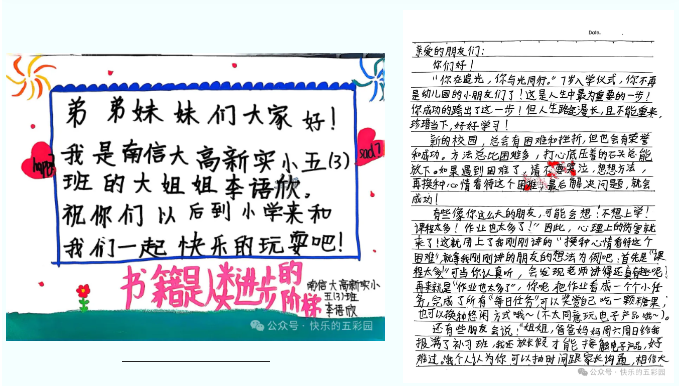 弟弟妹妹们大家好！
happy?
sad?
我是南信大高新实小五(3)
班的大姐姐李语欣。
祝你们以后到小学来和
我们一起快乐的玩耍吧！
书籍是人类进步的
阶梯
南信大高新实小
五(3)班
李语欣
公众号·快乐的五彩园
Date.
亲爱的朋友们：
你们好！
"你在追光，你与光同行。"7岁入学仪式，你不再
是幼儿园的小朋友们了！这是人生中最为重要的一步！
你成功的踏出了这一步！但人生路途漫长，且不能重来，
珍惜当下，好好学习！
新的校园，总会有困难和挫折，但也会有荣誉
和成功。方法总比困难多，打心底压着的石头总能
放下。如果遇到困难了，请不要哭泣，想想方法，
再换种心情看待这个困难，最后解决问题，就会
成功！
有些像你这么大的朋友，可能会想：不想上学！
课程太多！作业也太多了！"因此，心理上的伤害就
来了！这就用上了我刚刚讲的"换种心情看待这个
困难"，就拿我刚刚讲的朋友的想法为例吧：首先是"课
程太多"，可当你认真听，会发现老师讲得还真有趣呢！
再来就是"作业也太多了"，你吧，把作业看成一个个小任
务，完成了所有"每日任务"可以奖励自己吃一颗糖果，
也可以换种悠闲方式哦～(不太同意玩电子产品哦～)。
还有些朋友会说："姐姐，爸爸妈妈周六周日给我
报满了补习班，我还放长假才能接触电子产品，好
难过。我个人认为你可以抽时间跟家长沟通，相信大
公众号·快乐的五彩园